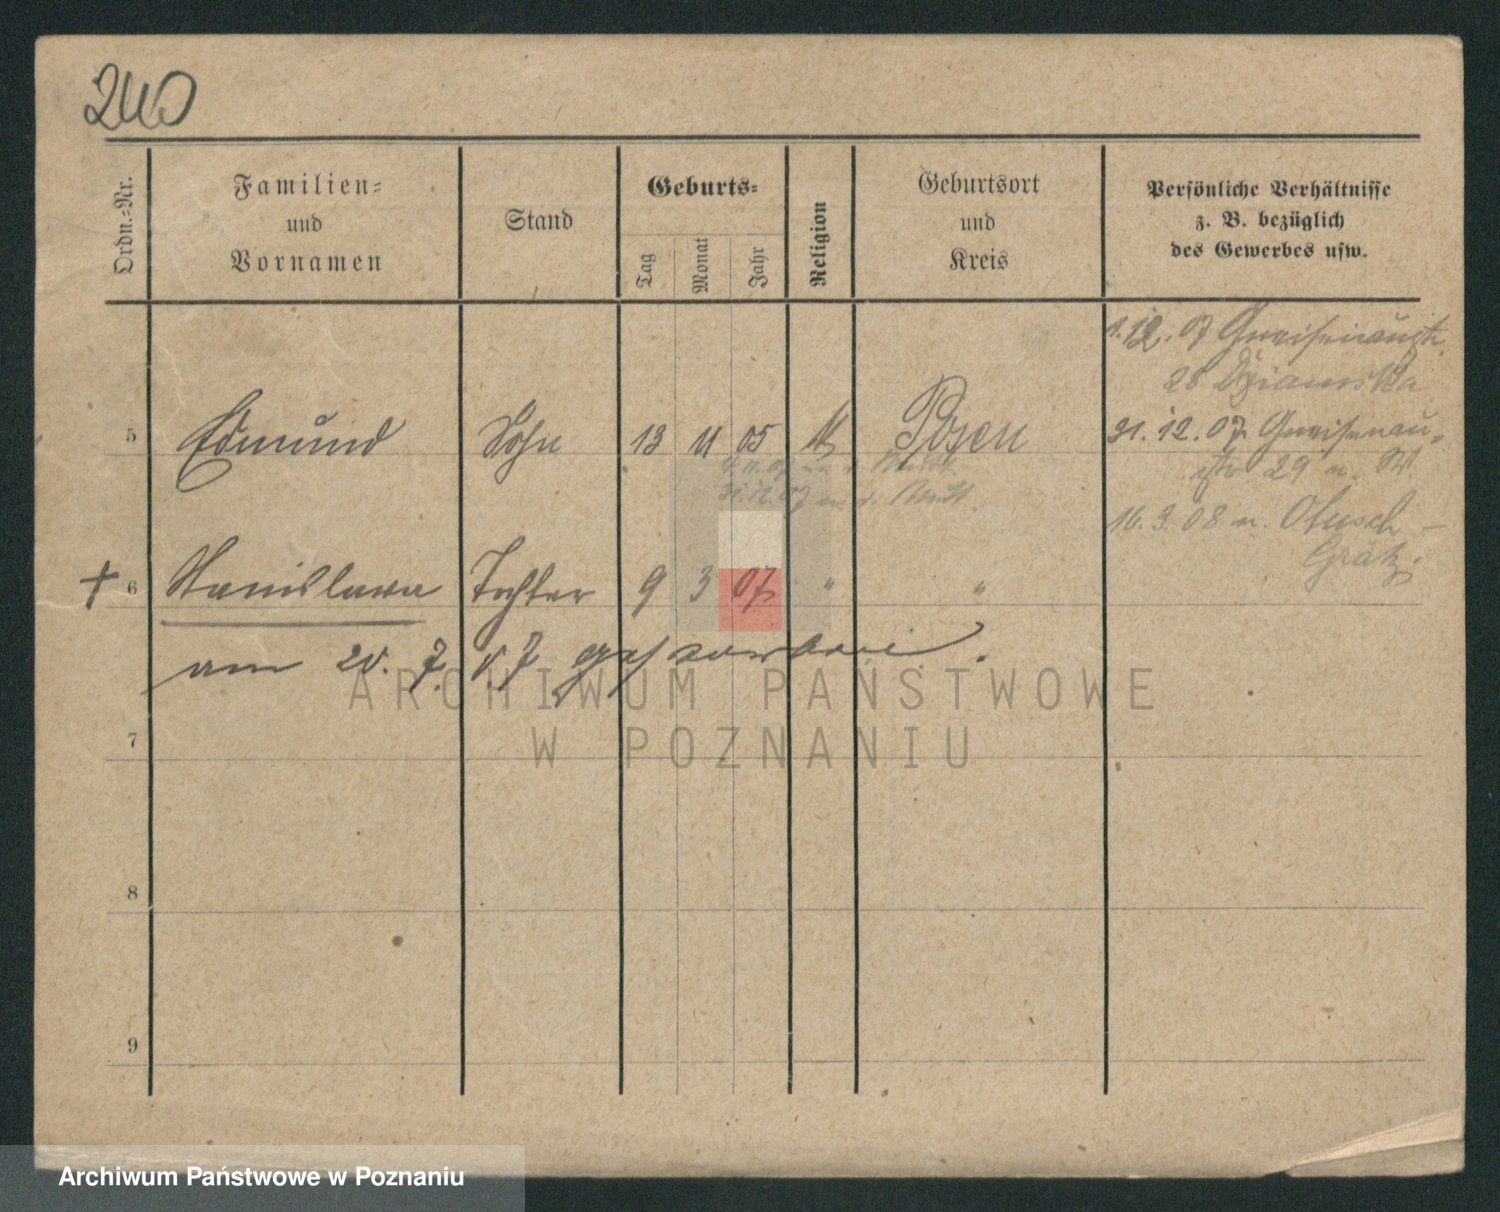 240
Ordn.-Nr.
Familien-
und
Vornamen
Stand
Geburts-
Tag
Monat
Jahr
Religion
Geburtsort
und
Kreis
Persönliche Verhältnisse
z. B. bezüglich
des Gewerbes usw.
1.12.07 Gneisenaustr.
28 Dziamska
5 Edmund Sohn 13 11 05 k Posen
31.12.07 Gneisenau-
str 29 n. W.
31.12.07
16.3.08 n. Otusch -
Grätz.
† 6 Stanislawa Tochter 9 3 07 " "
am 20.7.07 gestorben.
ARCHIWUM PAŃSTWOWE
W POZNANIU
7
8
9
Archiwum Państwowe w Poznaniu